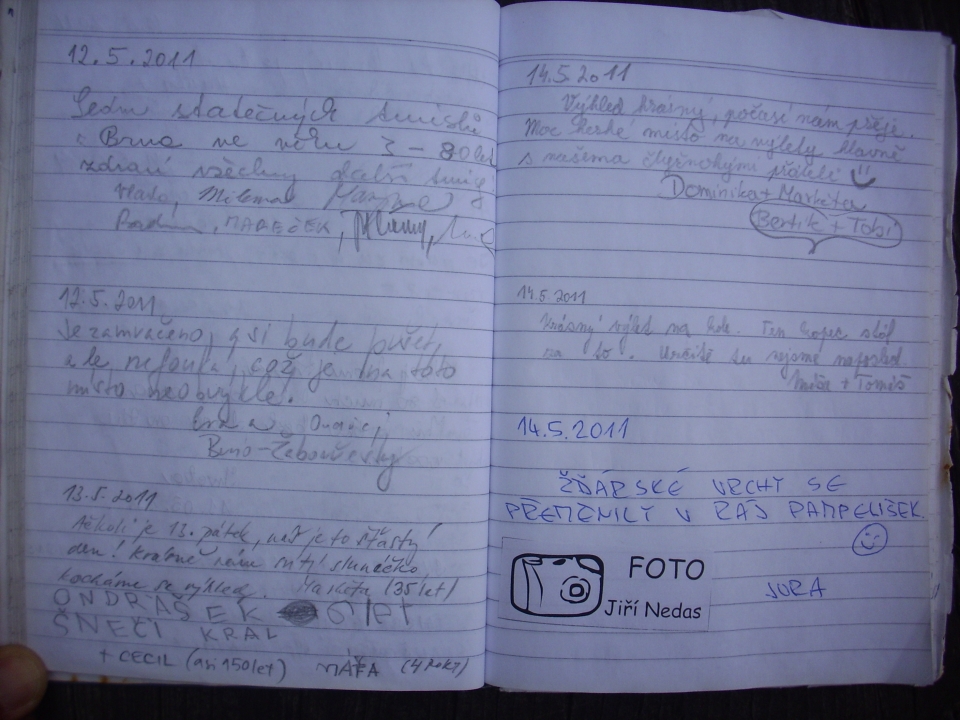 12.5.2011
Sedm statečných turistů
z Brna ve věku 3 - 80 let
zdraví všechny další
Vlasta, Milena,
MAREČEK,
12.5.2011
Je zamračeno, asi bude pršet,
ale nefouká, což je na toto
místo neobvyklé.
Erika Ondřej
Brno-Žebovřesky
13.5.2011
Ačkoli je 13. pátek, náš je to šťastný
den! Krásně nám svítí sluníčko,
kocháme se výhled. Markéta (35 let)
ONDRÁŠEK 6 let
ŠNEČÍ KRÁL
+ CECIL (asi 150 let) MÁŤA (4 ROKY)
14.5.2011
Výhled krásný, počasí nám přeje.
Moc hezké místo na výlety, hlavně
s našema čtyřnohými přáteli
Dominika + Markéta
Bertík + Tobi
14.5.2011
Krásný výlet na kole. Ten kopec stál
za to. Určitě tu nejsme naposled.
Míša + Tomáš
14.5.2011
ŽĎÁRSKÉ VRCHY SE
PŘEMĚNILY V RÁJ PAMPELIŠEK
JURA
FOTO
Jiří Nedas